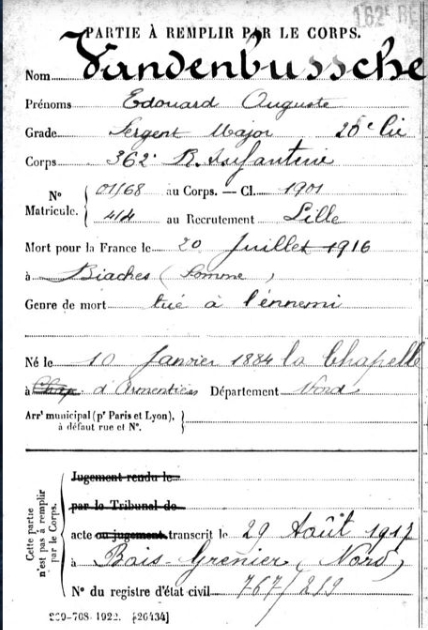 162e RE
PARTIE À REMPLIR PAR LE CORPS.
Nom Vandenbussche
Prénoms Edouard Auguste
Grade Sergent Major 20e Cie
Corps 362e R. Infanterie
N° Matricule. 01168 au Corps. — Cl. 1901
414 au Recrutement Lille
Mort pour la France le 20 Juillet 1916
à Biaches (Somme)
Genre de mort tué à l'ennemi
Né le 10 Janvier 1884 la Chapelle
à Chap d'Armentières Département Nord
Arrt municipal (pr Paris et Lyon),
à défaut rue et N°.
Cette partie n'est pas à remplir par le Corps.
Jugement rendu le
par le Tribunal de
acte ou jugement transcrit le 29 Août 1917
à Bois-Grenier (Nord)
N° du registre d'état civil 767/219
269-708-1922. [26434]